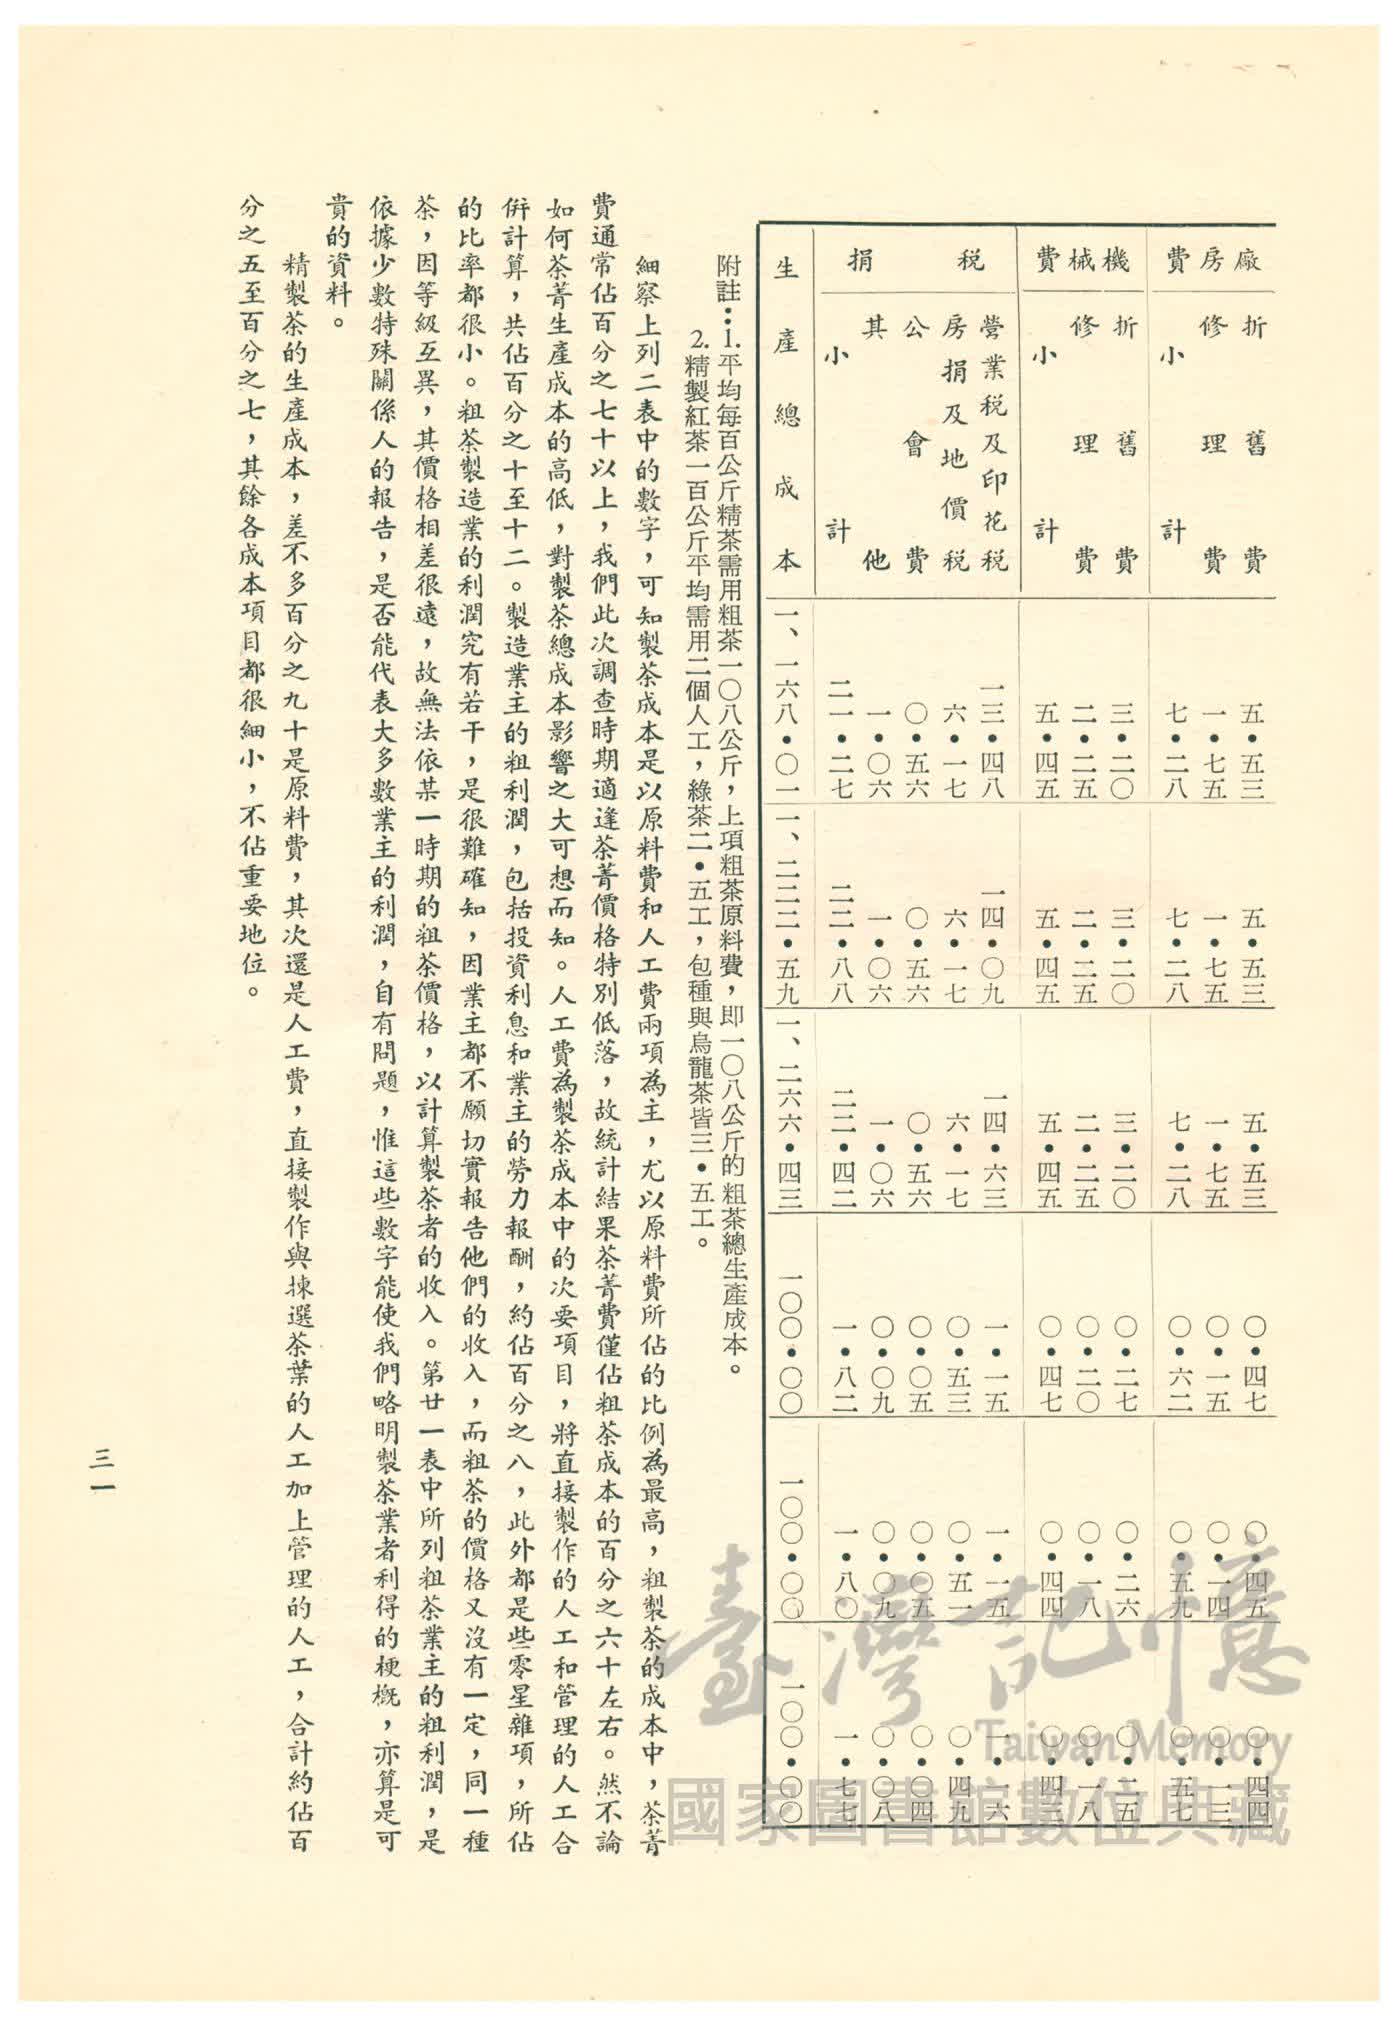 廠房費
折舊費 五•五三 五•五三 五•五三 〇•四七 〇•四五 〇•四四
修理費 一•七五 一•七五 一•七五 〇•一五 〇•一四 〇•一三
小計 七•二八 七•二八 七•二八 〇•六二 〇•五九 〇•五七
機械費
折舊費 三•二〇 三•二〇 三•二〇 〇•二七 〇•二六 〇•二五
修理費 二•二五 二•二五 二•二五 〇•二〇 〇•一八 〇•一八
小計 五•四五 五•四五 五•四五 〇•四七 〇•四四 〇•四三
稅捐
營業税及印花税 一三•四八 一四•〇九 一四•六三 一•一五 一•一五 一•一六
房捐及地價税 六•一七 六•一七 六•一七 〇•五三 〇•五一 〇•四九
公會費 〇•五六 〇•五六 〇•五六 〇•〇五 〇•〇五 〇•〇四
其他 一•〇六 一•〇六 一•〇六 〇•〇九 〇•〇九 〇•〇八
小計 二一•二七 二二•八八 二二•四二 一•八二 一•八〇 一•七七
生產總成本 一、一六八•〇一 一、二二二•五九 一、二六六•四三 一〇〇•〇〇 一〇〇•〇〇 一〇〇•〇〇
附註：1.平均每百公斤精茶需用粗茶一〇八公斤，上項粗茶原料費，即一〇八公斤的粗茶總生產成本。
2.精製紅茶一百公斤平均需用二個人工，綠茶二•五工，包種與烏龍茶皆三•五工。
細察上列二表中的數字，可知製茶成本是以原料費和人工費兩項為主，尤以原料費所佔的比例為最高，粗製茶的成本中，茶菁
費通常佔百分之七十以上，我們此次調查時期適逢茶菁價格特別低落，故統計結果茶菁費僅佔粗茶成本的百分之六十左右。然不論
如何茶菁生產成本的高低，對製茶總成本影響之大可想而知。人工費為製茶成本中的次要項目，將直接製作的人工和管理的人工合
併計算，共佔百分之十至十二。製造業主的粗利潤，包括投資利息和業主的勞力報酬，約佔百分之八，此外都是些零星雜項，所佔
的比率都很小。粗茶製造業的利潤究有若干，是很難確知，因業主都不願切實報告他們的收入，而粗茶的價格又沒有一定，同一種
茶，因等級互異，其價格相差很遠，故無法依某一時期的粗茶價格，以計算製茶者的收入。第廿一表中所列粗茶業主的粗利潤，是
依據少數特殊關係人的報告，是否能代表大多數業主的利潤，自有問題，惟這些數字能使我們略明製茶業者利得的梗概，亦算是可
貴的資料。
精製茶的生產成本，差不多百分之九十是原料費，其次還是人工費，直接製作與揀選茶葉的人工加上管理的人工，合計約佔百
分之五至百分之七，其餘各成本項目都很細小，不佔重要地位。
三一
臺灣記憶
Taiwan Memory
國家圖書館數位典藏